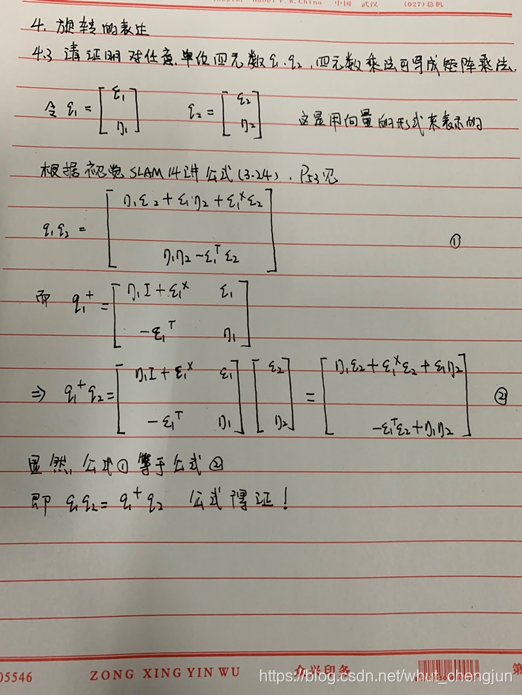 中国 武汉 (027)总机
4. 旋转的表达
4.3 请证明对任意单位四元数q₁,q₂,四元数乘法可写成矩阵乘法.
令 q₁ = [ε₁ η₁] q₂ = [ε₂ η₂] 这是用向量的形式来表示的
根据视觉SLAM14讲公式(3.24),P53见
q₁q₂ = [η₁ε₂ + ε₁η₂ + ε₁ˣε₂ η₁η₂ - ε₁ᵀε₂] ①
而 q₁⁺ = [η₁I + ε₁ˣ ε₁ -ε₁ᵀ η₁]
⇒ q₁⁺q₂ = [η₁I + ε₁ˣ ε₁ -ε₁ᵀ η₁] [ε₂ η₂] = [η₁ε₂ + ε₁ˣε₂ + ε₁η₂ -ε₁ᵀε₂ + η₁η₂] ②
显然,公式①等于公式②
即 q₁q₂ = q₁⁺q₂ 公式得证!
05546 ZONG XING YIN WU 众兴印务 第
https://blog.csdn.net/whut_chengjun